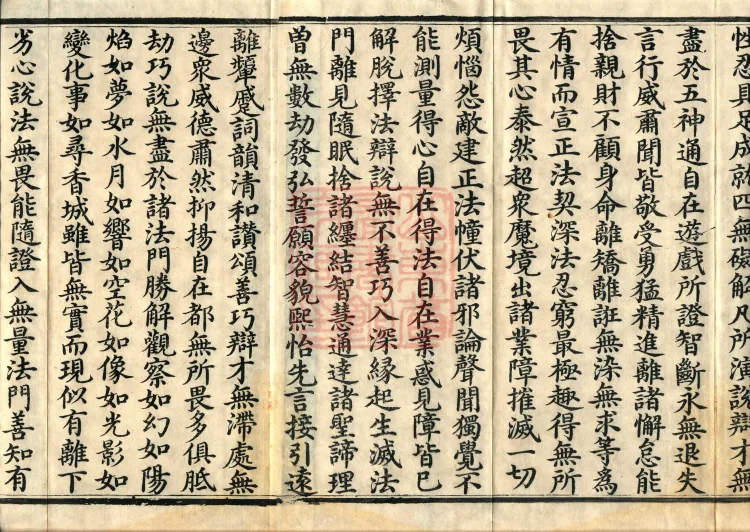 性忍具足成就四無礙解凡所演說辯才無
盡於五神通自在遊戲所證智斷永無退失
言行威肅聞皆敬受勇猛精進離諸懈怠能
捨親財不顧身命離矯離誑無染無求等為
有情而宣正法契深法忍窮最極趣得無所
畏其心泰然超衆魔境出諸業障摧滅一切
煩惱怨敵建正法幢伏諸邪論聲聞獨覺不
能測量得心自在得法自在業惑見障皆已
解脫擇法辯說無不善巧入深緣起生滅法
門離見隨眠捨諸纏結智慧通達諸聖諦理
曾無數劫發弘誓願容貌熙怡先言接引遠
離顰蹙詞韻清和讚頌善巧辯才無滯處無
邊衆威德肅然抑揚自在都無所畏多俱胝
劫巧說無盡於諸法門勝解觀察如幻如陽
焰如夢如水月如響如空花如像如光影如
變化事如尋香城雖皆無實而現似有離下
劣心說法無畏能隨證入無量法門善知有